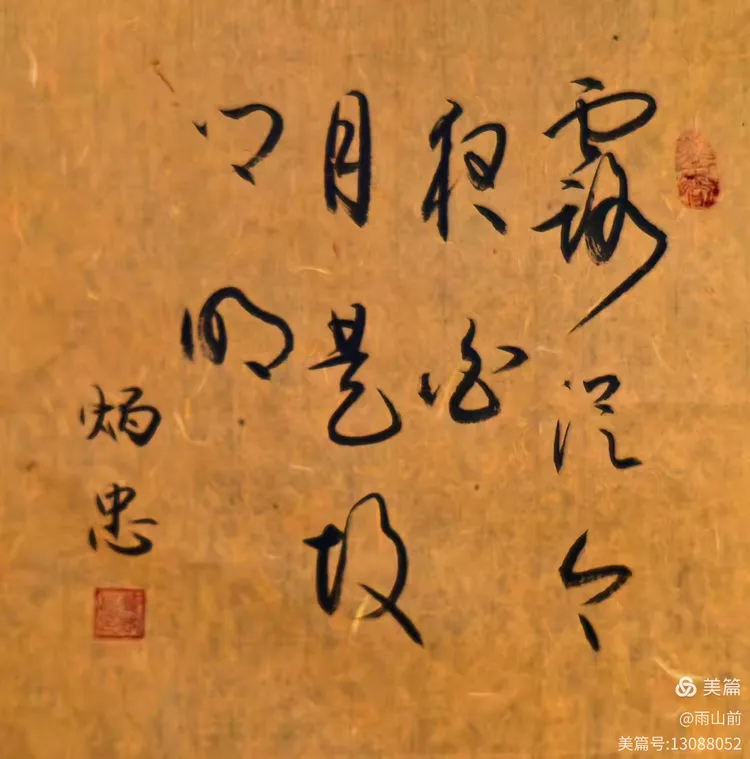 露從今
夜白
月是故
鄉明
炳忠
美篇
@雨山前
美篇号:13088052